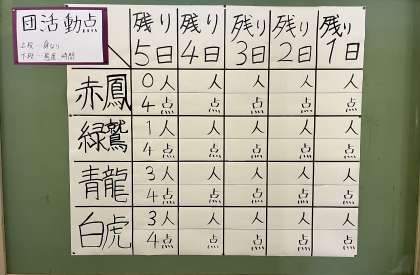 団活動点
残り 残り 残り 残り 残り
5日 4日 3日 2日 1日
赤鳳 0人 人 人 人 人
4点 点 点 点 点
緑鷲 1人 人 人 人 人
4点 点 点 点 点
青龍 3人 人 人 人 人
4点 点 点 点 点
白虎 3人 人 人 人 人
4点 点 点 点 点